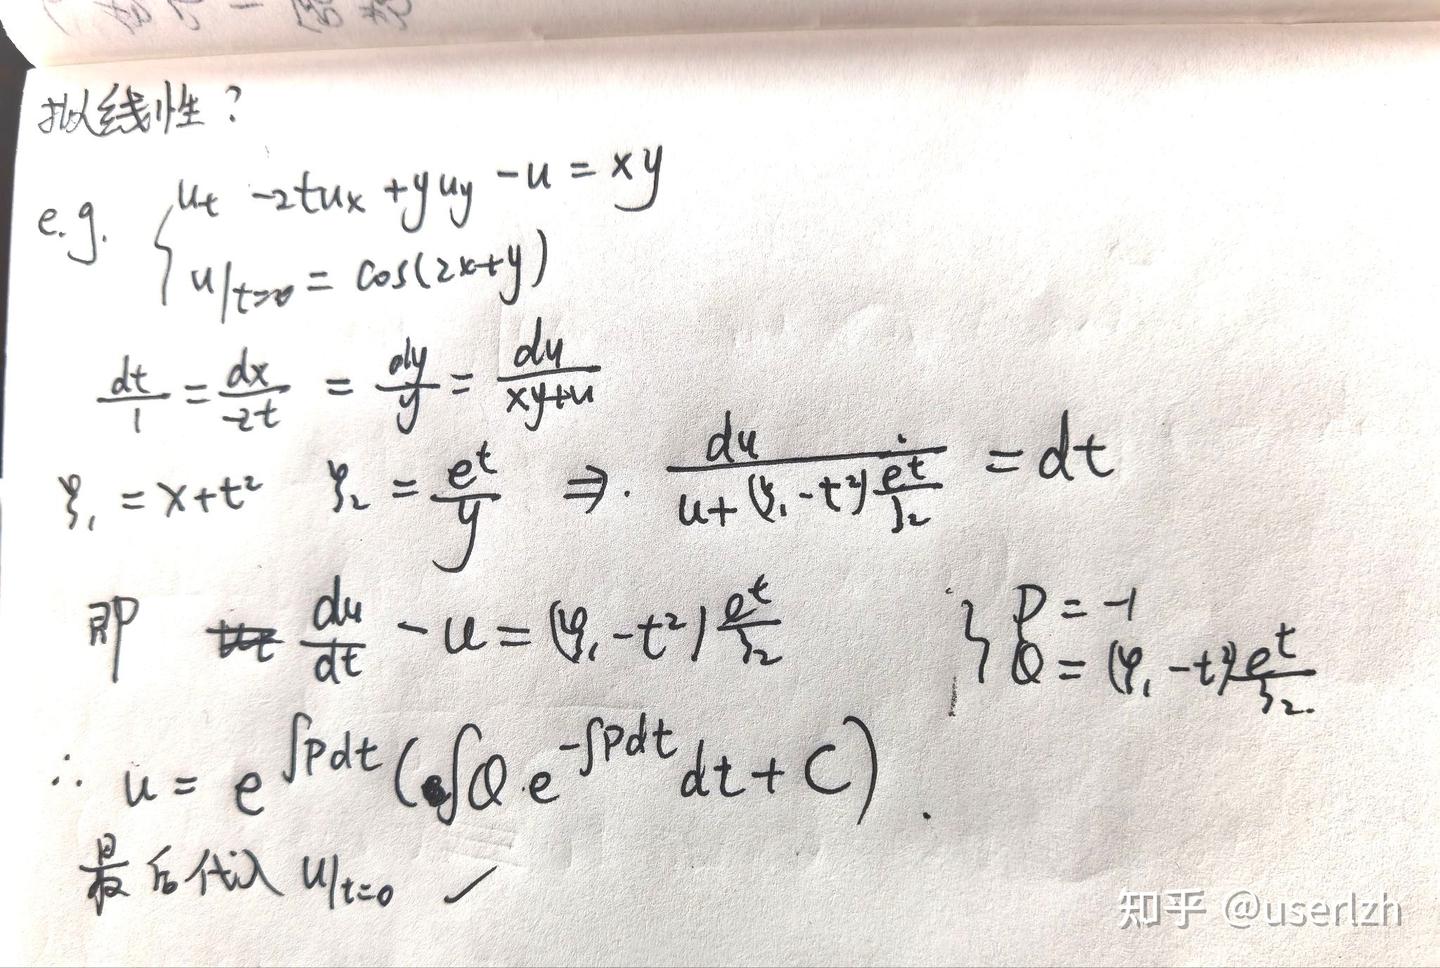 拟线性?
e.g. { u_t -2tu_x +yu_y -u = xy
u|_{t=0} = cos(2x+y)
dt/1 = dx/-2t = dy/y = du/xy+u
ξ₁ = x+t² ξ₂ = e^t/y ⇒. du/u+(ξ₁-t²)e^t/ξ₂ = dt
即 du/dt -u = (ξ₁-t²)e^t/ξ₂ { P = -1
Q = (ξ₁-t²)e^t/ξ₂.
∴ u = e^{∫Pdt}(∫Q·e^{-∫Pdt}dt+C).
最后代入 u|_{t=0} ✓
知乎 @userlzh